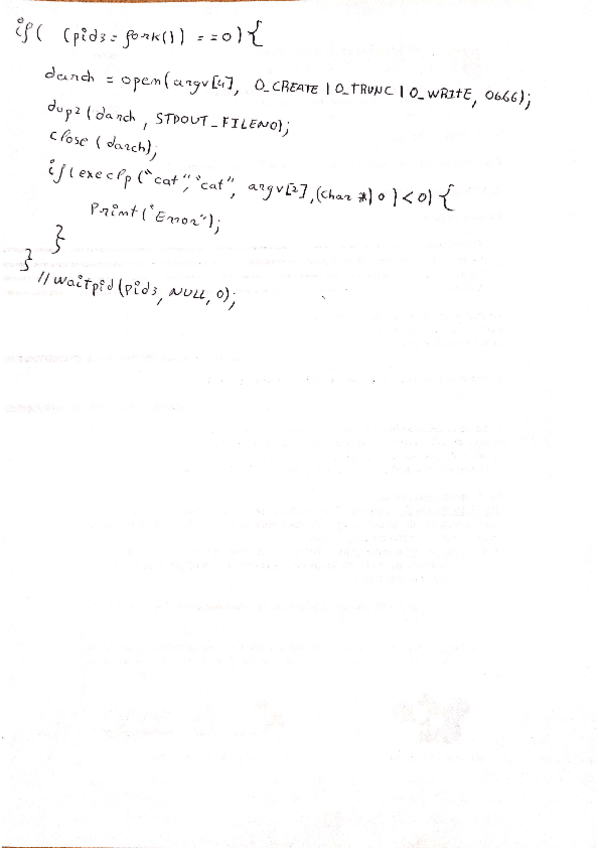 if( (pid3 = fork()) == 0){
darch = open(argv[4], O_CREATE | O_TRUNC | O_WRITE, 0666);
dup2(darch, STDOUT_FILENO);
close(darch);
if(execlp("cat","cat", argv[2],(char *) 0)<0){
Print("Error");
}
}
//waitpid(pid3, NULL, 0);